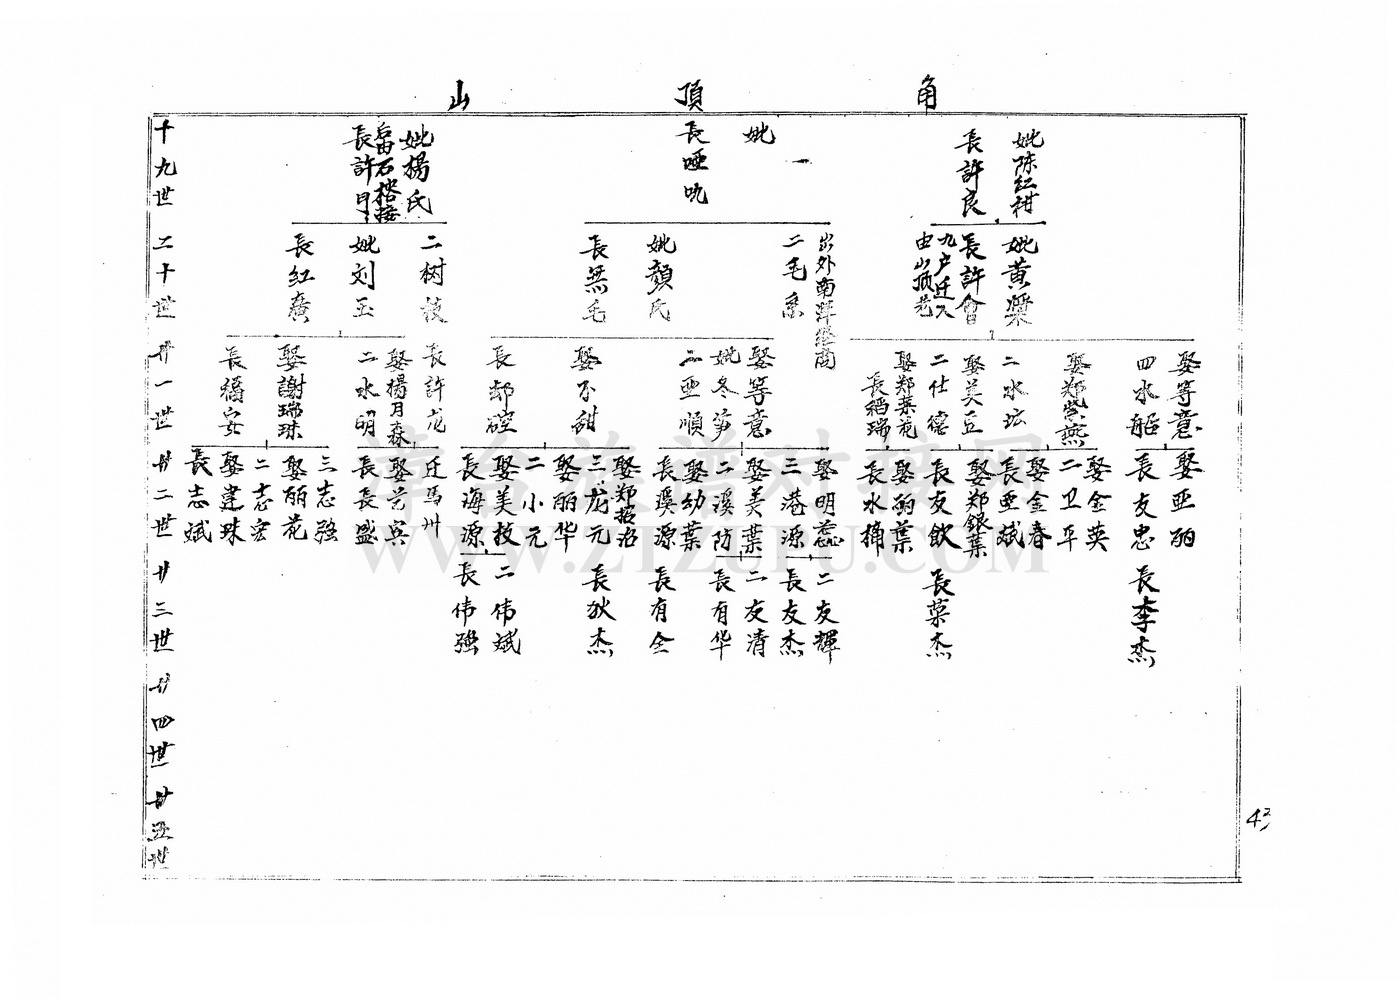 角頂山
十九世
妣陈红柑
長許良
妣
一
長啞吼
妣楊氏
長許門
二十世
妣黄槳
長許會
九户迁入
由山顶巷
出外南洋經商
二毛系
妣顏氏
長無毛
二树枝
妣刘玉
長红廣
廿一世
娶等意
四水船
娶郑紫燕
二水坛
娶美丘
二仕德
娶郑菜花
長稻瑞
娶等意
妣冬笋
二亚順
娶不甜
長部磋
長許龙
娶楊月森
二水明
娶謝瑞珠
長福安
廿二世
娶亚丽
長友忠
娶金英
二卫平
娶金春
長亚斌
娶郑銀葉
長友飲
娶丽葉
長水捅
娶明蕊
三港源
娶美葉
二溪防
娶幼葉
長溪源
娶郑招治
三龙元
娶丽华
二小元
娶美技
長海源
迁馬州
娶艺宾
長長盛
三志強
娶丽花
二志宏
娶建珠
長志斌
廿三世
長李杰
長菜杰
二友輝
長友杰
二友清
長有华
長有全
長狄杰
二伟斌
長伟強
廿四世
廿五世
43
漳台族谱对接网
WWW.ZTZUPU.COM